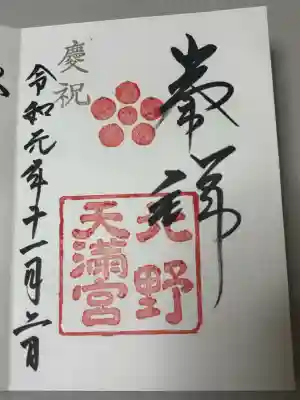 北野
天満宮
慶祝
令和元年十一月二日